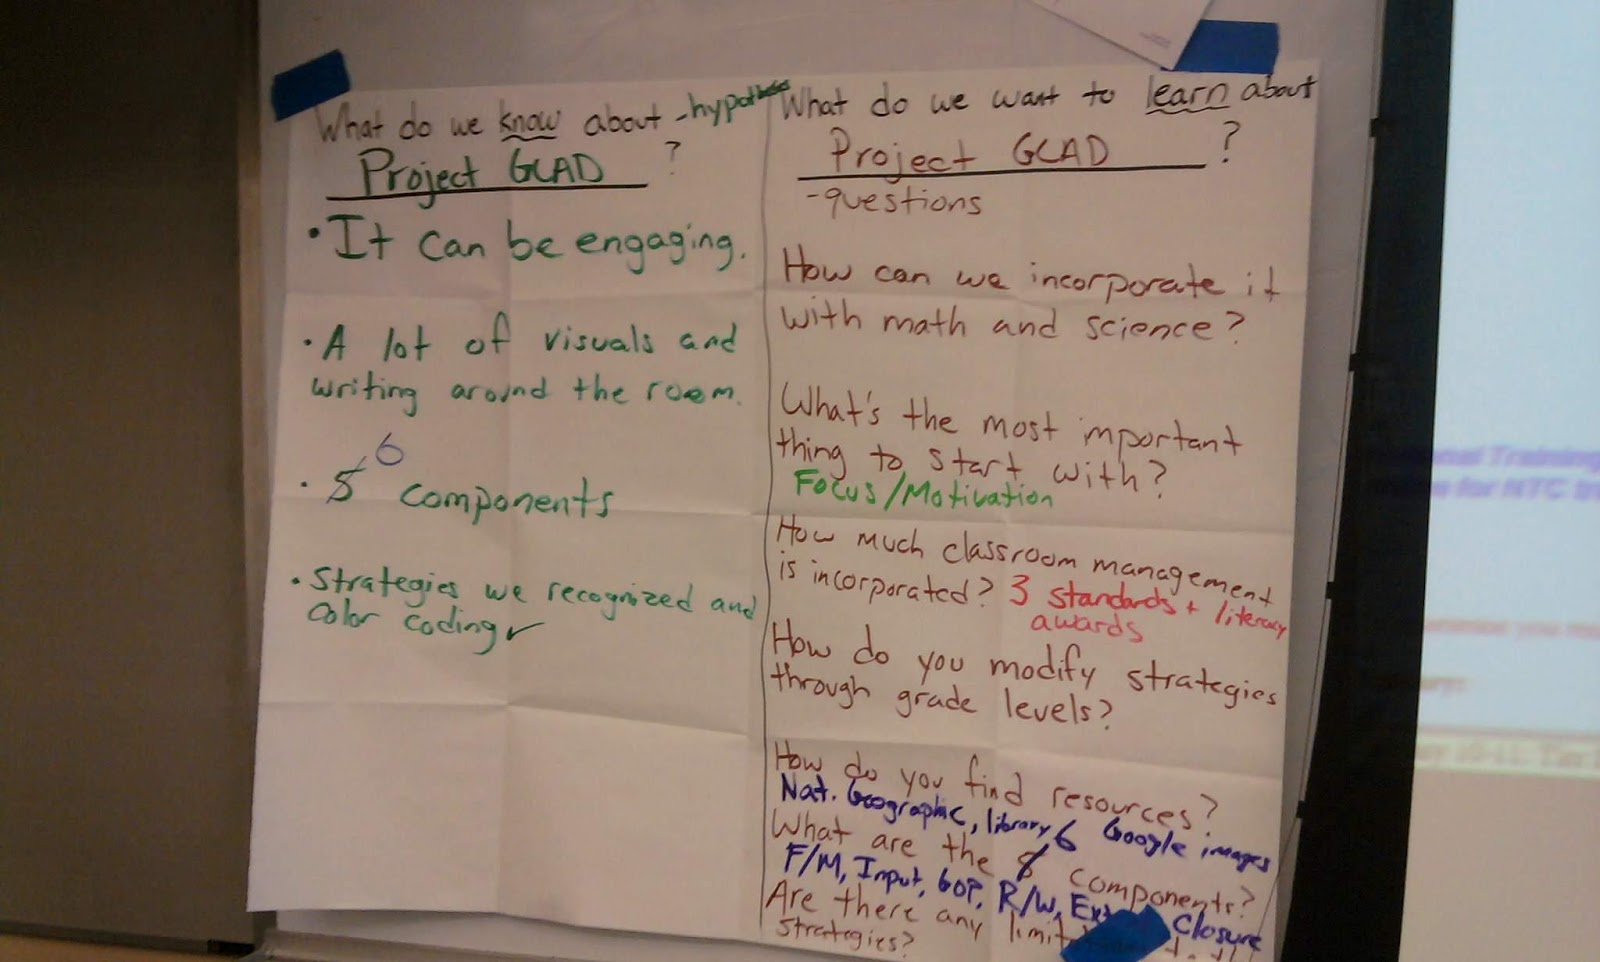 What do we know about -hypotheses
Project GLAD ?
• It can be engaging.
• A lot of visuals and
writing around the room.
6
• 5 components
• Strategies we recognized and
color coding ✓
What do we want to learn about
Project GLAD ?
-questions
How can we incorporate it
with math and science?
What's the most important
thing to start with?
Focus/Motivation
How much classroom management
is incorporated? 3 standards + literacy
awards
How do you modify strategies
through grade levels?
How do you find resources?
Nat. Geographic, library, Google images
6
What are the components?
F/M, Input, GOP, R/W, Closure
Are there any
strategies?